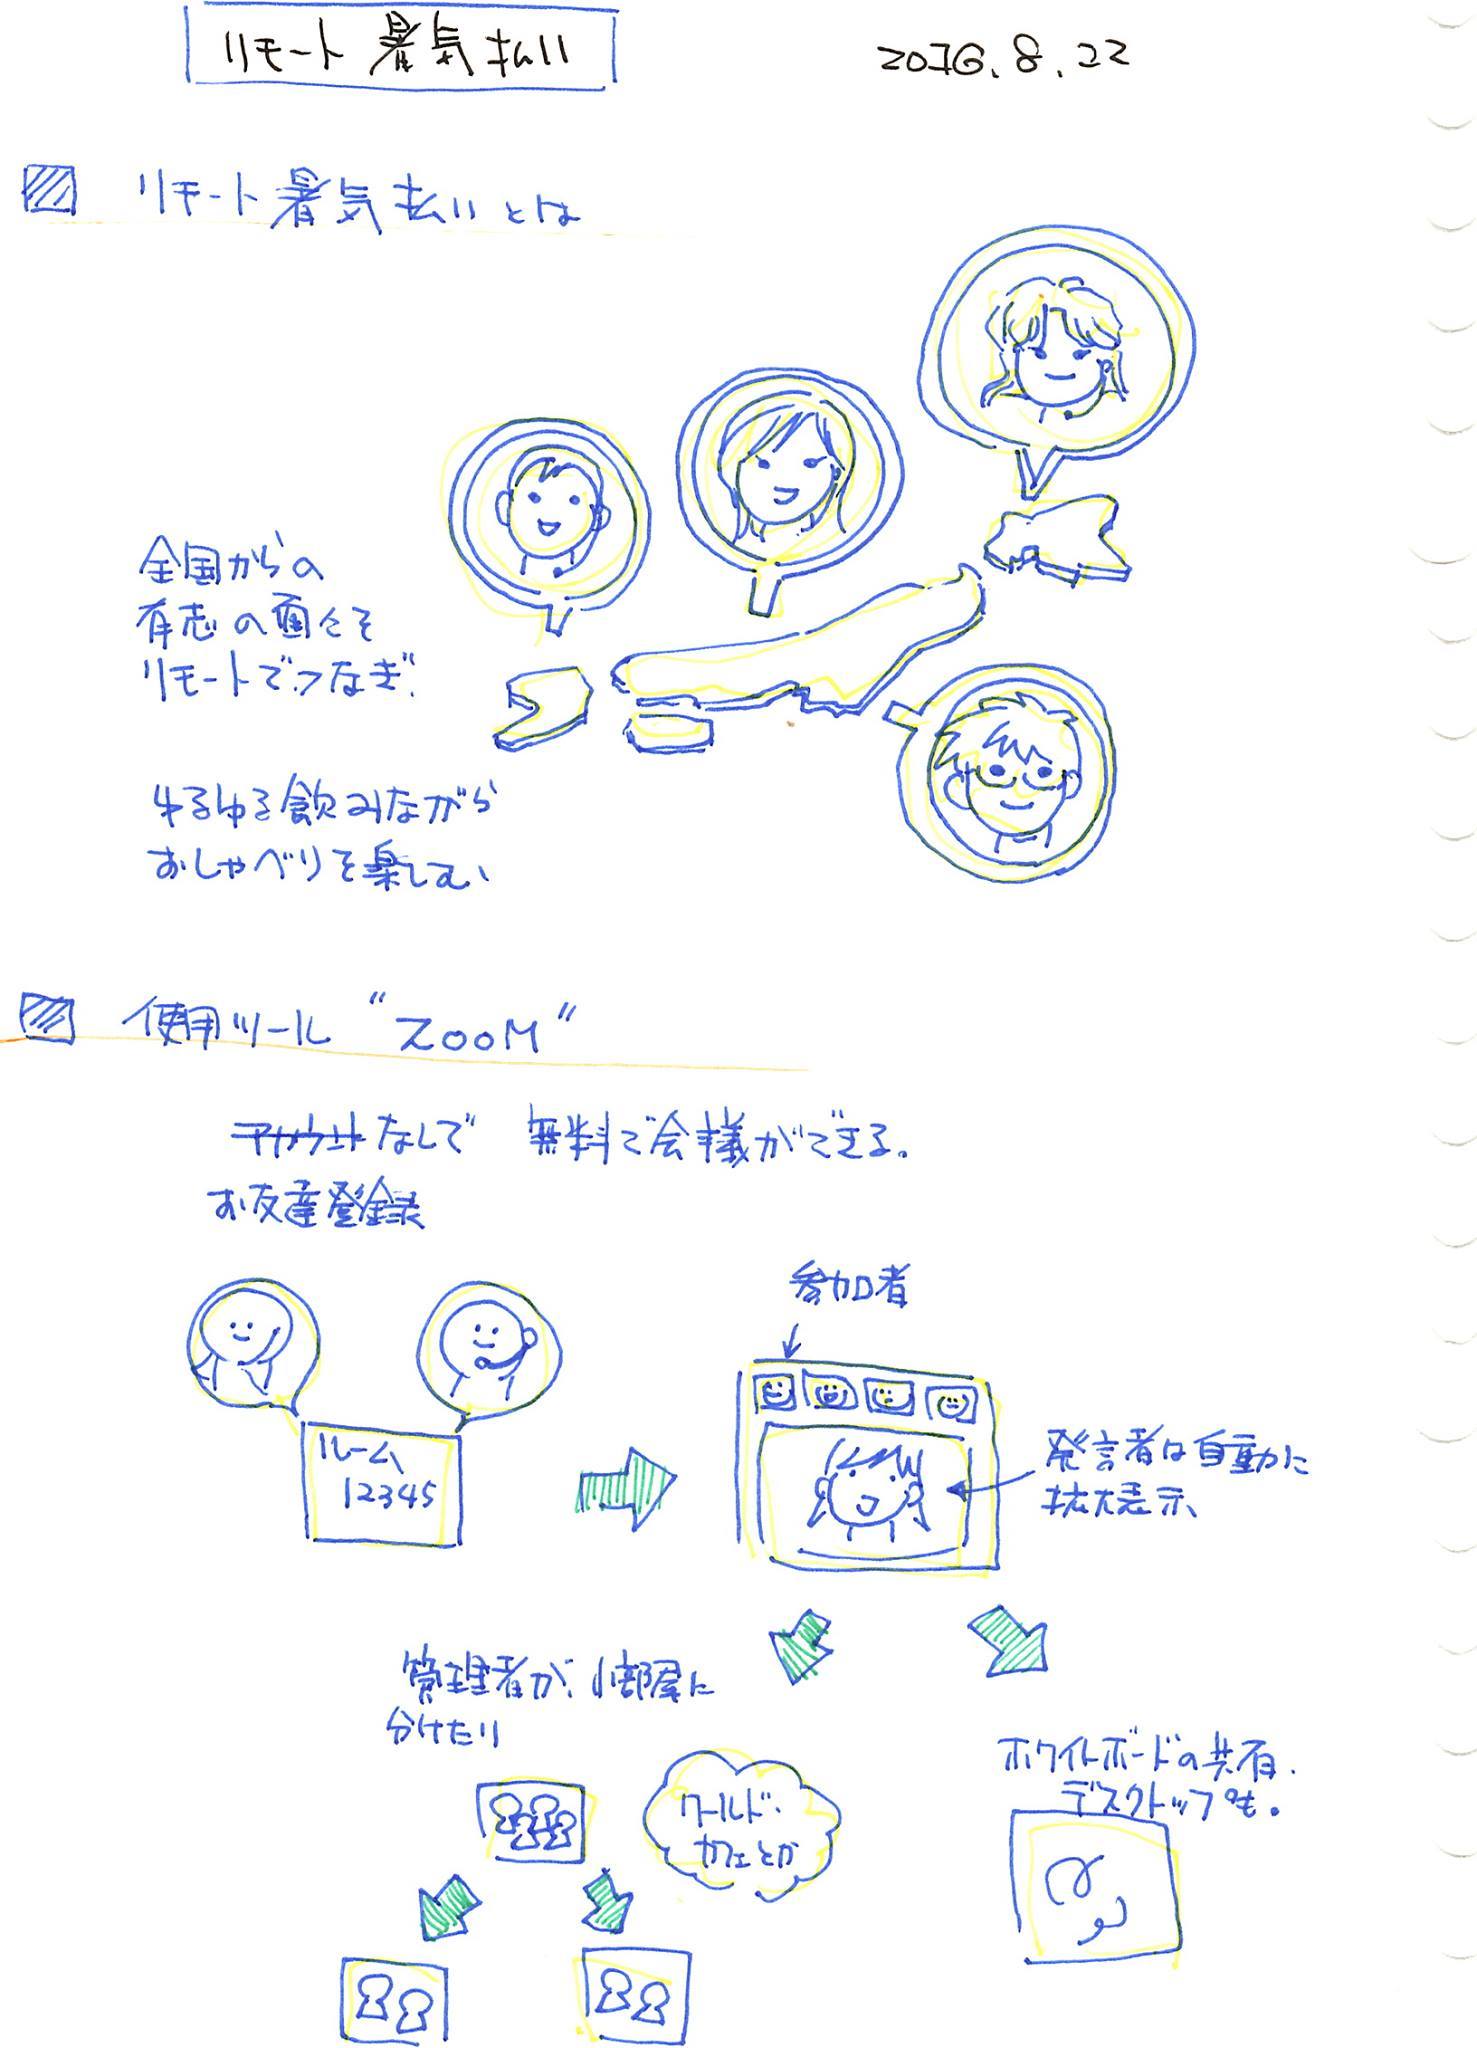 リモート暑気払い
2016.8.22
リモート暑気払いとは
全国からの
有志の面々を
リモートでつなぎ、
ゆるゆる飲みながら
おしゃべりを楽しむ
使用ツール "ZOOM"
アカウントなしで 無料で会議ができる。
お友達登録
参加者
ルーム
12345
発言者は自動に
拡大表示
管理者が、小部屋に
分けたり
ワールド・
カフェとか
ホワイトボードの共有、
デスクトップも。